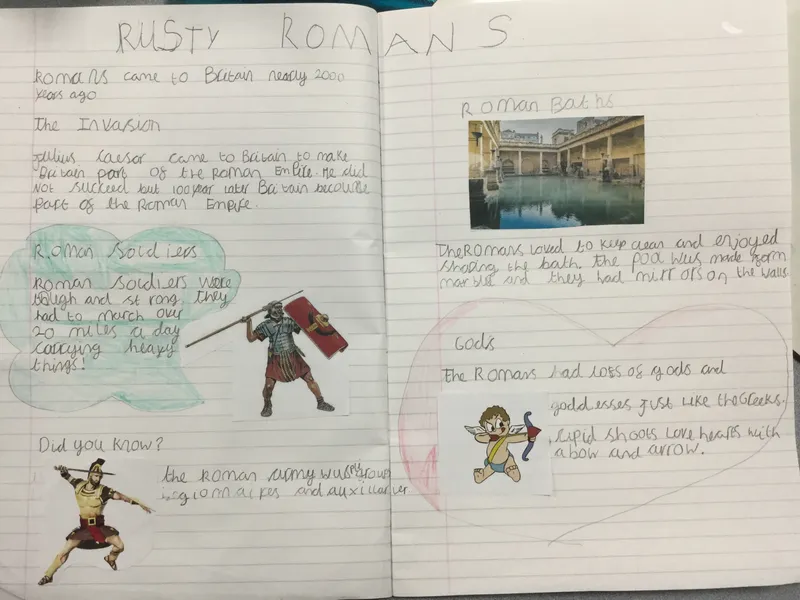 RUSTY ROMANS
Romans came to Britain nearly 2000
years ago
The Invasion
Julius Caesar came to Britain to make
Britain part of the Roman Empire. He did
not suckeed but 100 year later Britain became
part of the Roman Empire.
Roman Soldiers
Roman soldiers were
tough and strong, they
had to march over
20 miles a day
carrying heavy
things!
Did you know?
the Roman army was
and
Roman Baths
The Romans loved to keep clean and enjoyed
the bath. the pool was made form
marble and they had mirrors on the walls
Gods
The Romans had lots of gods and
goddesses just like the Greeks.
cupid shoots love hearts with
a bow and arrow.